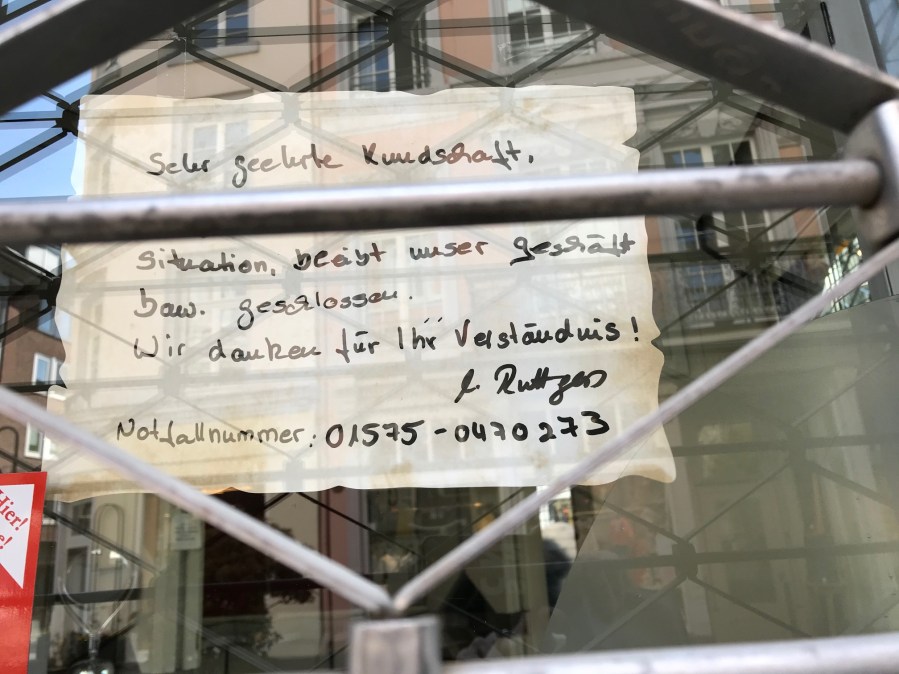 Sehr geehrte Kundschaft,
Situation, bleibt unser geschäft
bzw. geschlossen.
Wir danken für Ihr Verständnis!
Ruttgers
Notfallnummer: 01575-0470273
Hier!